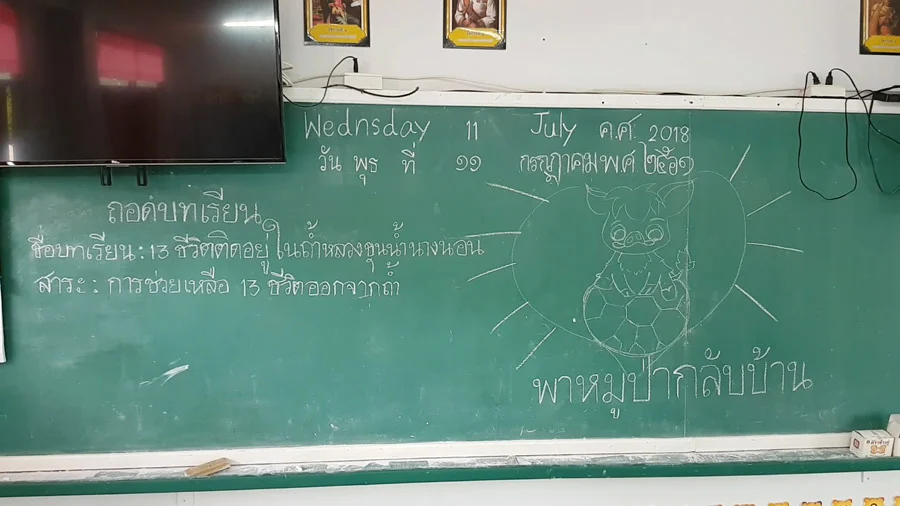 Wednsday 11 July ค.ศ. 2018
วัน พุธ ที่ ๑๑ กรกฎาคม พ.ศ ๒๕๖๑
ถอดบทเรียน
ชื่อบทเรียน : 13 ชีวิตติดอยู่ในถ้ำหลวงขุนน้ำนางนอน
สาระ : การช่วยเหลือ 13 ชีวิตออกจากถ้ำ
พาหมูป่ากลับบ้าน